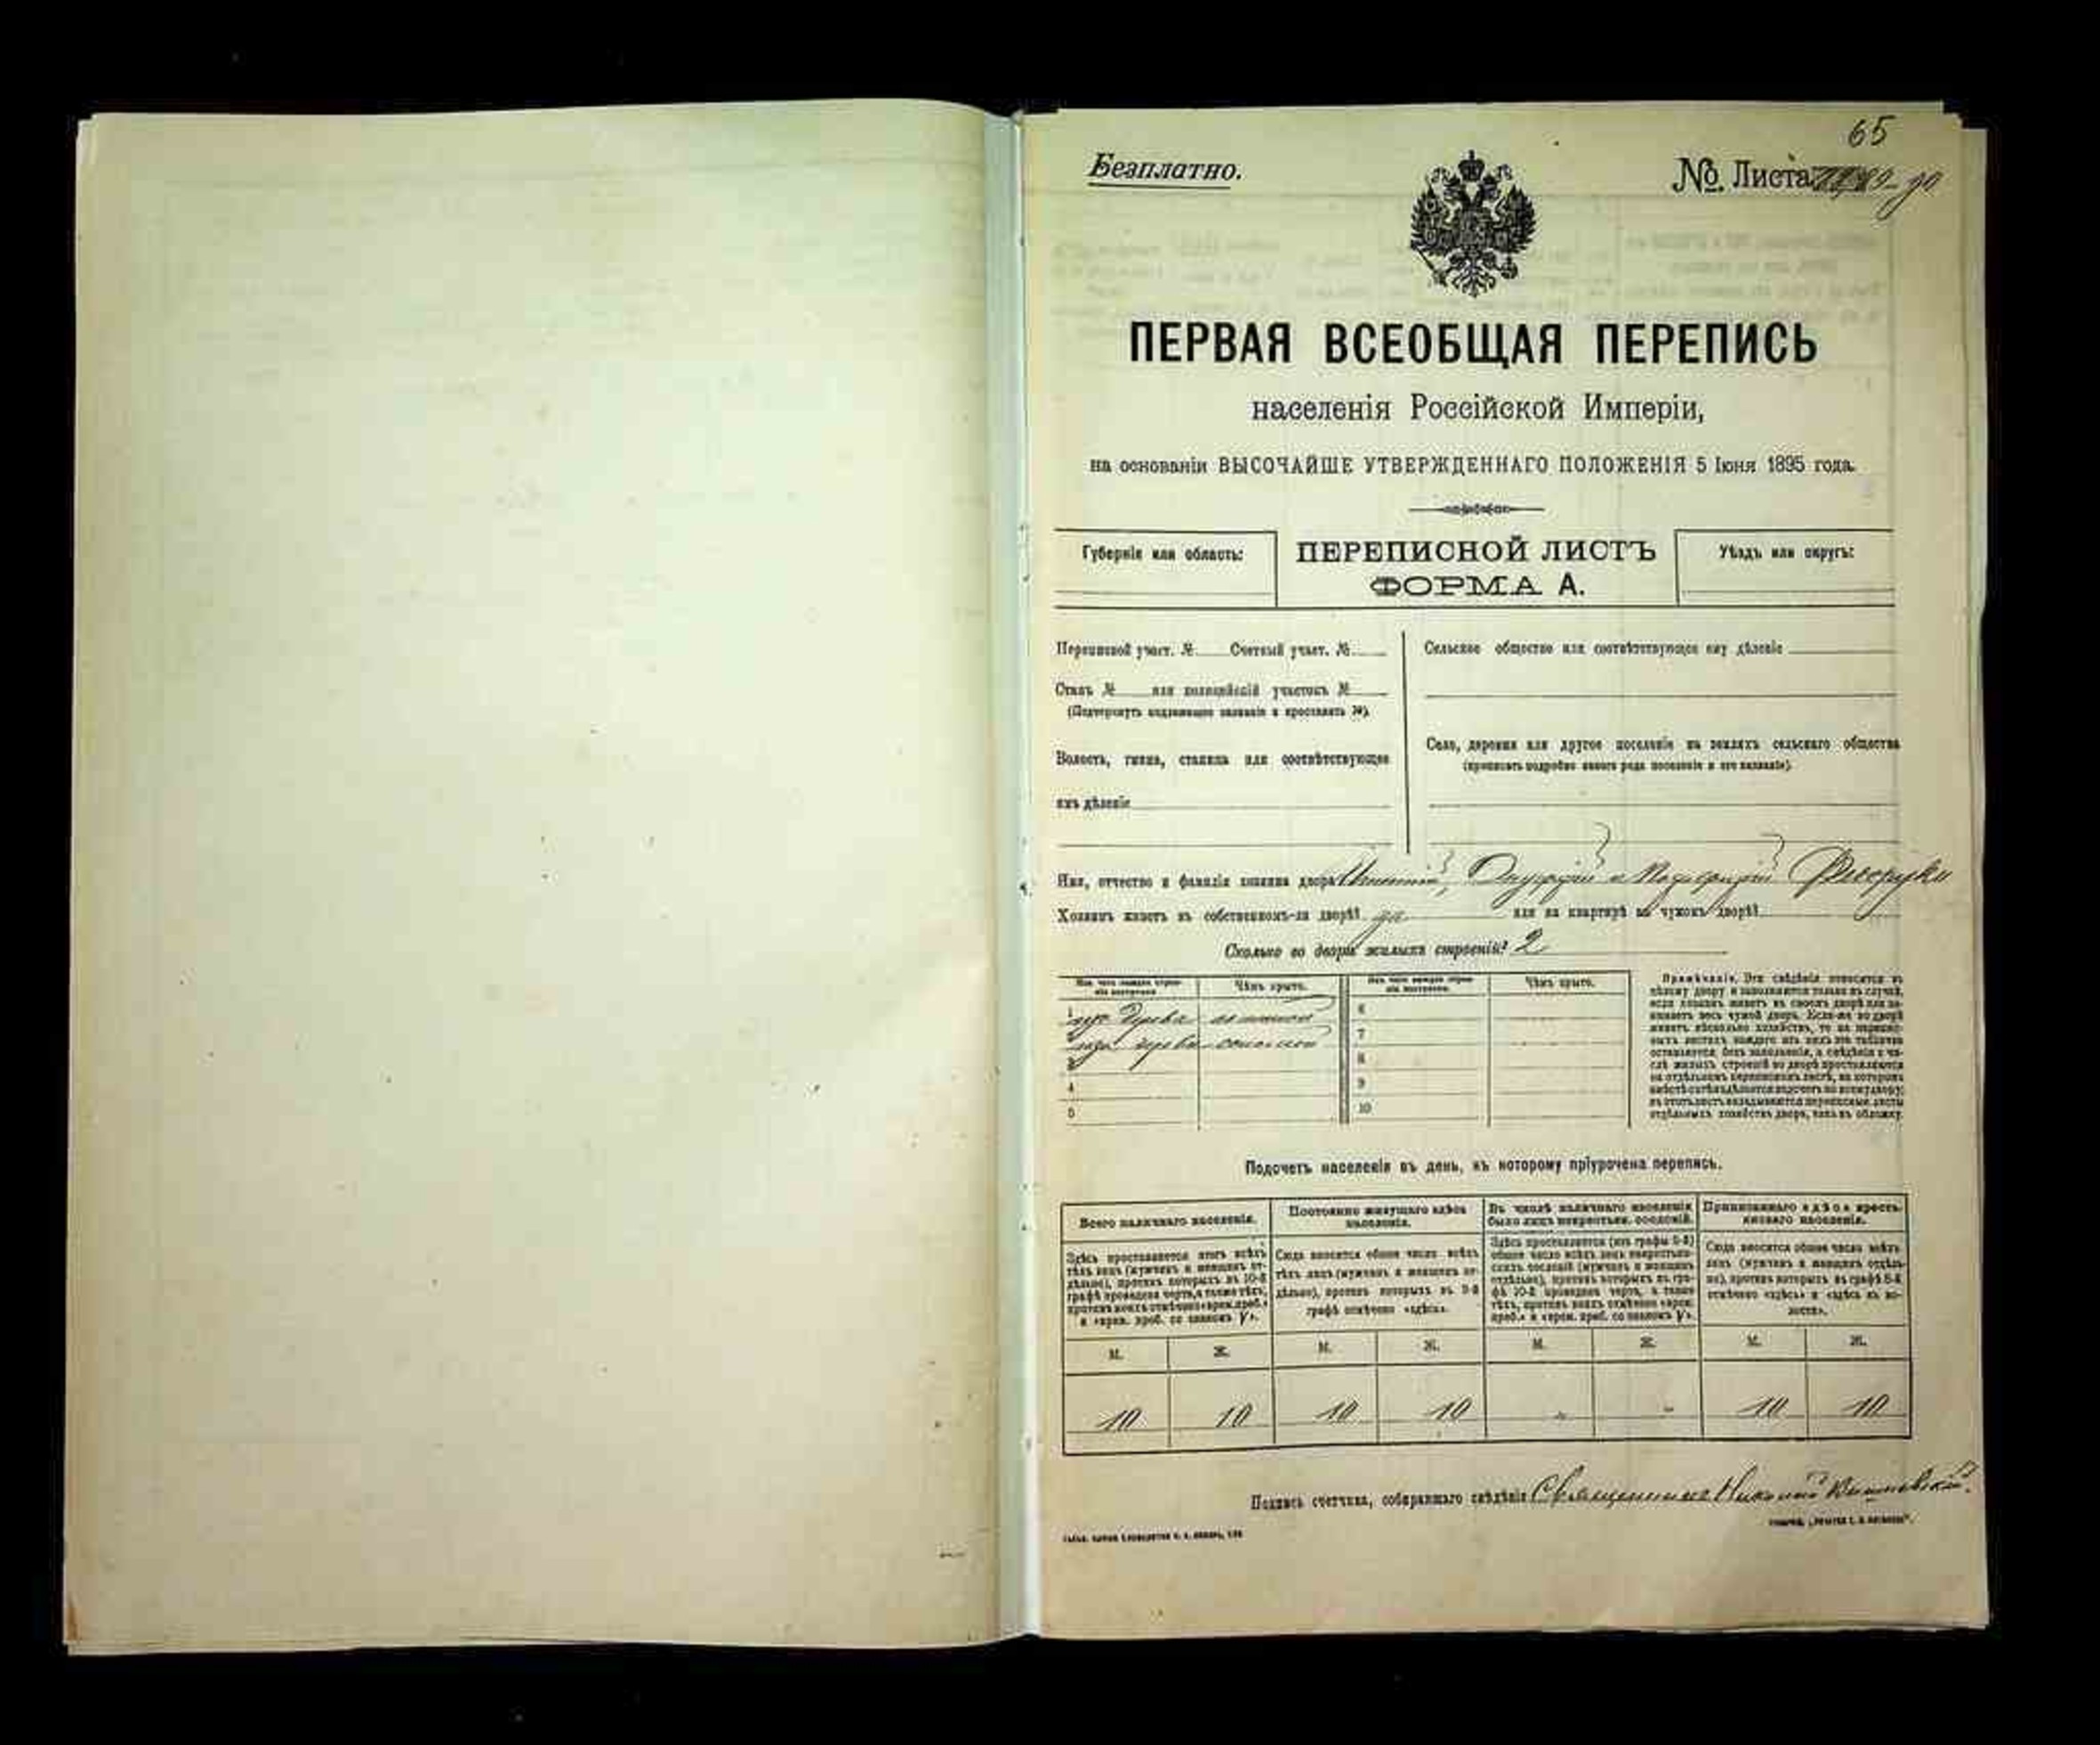 65
Безплатно.
№ Листа
ПЕРВАЯ ВСЕОБЩАЯ ПЕРЕПИСЬ
населенія Россійской Имперіи,
на основаніи ВЫСОЧАЙШЕ УТВЕРЖДЕННАГО ПОЛОЖЕНІЯ 5 Іюня 1895 года.
Губернія или область:
ПЕРЕПИСНОЙ ЛИСТЪ
ФОРМА А.
Уѣздъ или округъ:
Переписной участ. № Счетный участ. №
Станъ № или полицейскій участокъ №
(Подчеркнуть надлежащее названіе и проставить №).
Волость, гмина, станица или соотвѣтствующее
имъ дѣленіе
Сельское общество или соотвѣтствующее ему дѣленіе
Село, деревня или другое поселеніе на земляхъ сельскаго общества
(прописать подробно какого рода поселеніе и его названіе).
Имя, отчество и фамилія хозяина двора
Хозяинъ живетъ въ собственномъ-ли дворѣ? да или на квартирѣ въ чужомъ дворѣ?
Сколько во дворѣ жилыхъ строеній? 2
Изъ чего каждое строе-
ніе построено.
Чѣмъ крыто.
Изъ чего каждое строе-
ніе построено.
Чѣмъ крыто.
1 изъ дерева соломой
2 изъ дерева соломой
3
4
5
6
7
8
9
10
Примѣчаніе. Эти свѣдѣнія относятся къ
цѣлому двору и заполняются только въ случаѣ,
если хозяинъ живетъ въ своемъ дворѣ или за-
нимаетъ весь чужой дворъ. Если-же во дворѣ
живетъ нѣсколько хозяйствъ, то на перепис-
ныхъ листахъ каждаго изъ нихъ эта табличка
оставляется безъ заполненія, а свѣдѣнія о чи-
слѣ жилыхъ строеній во дворѣ проставляются
на отдѣльномъ переписномъ листѣ, на которомъ
въ этотъ листъ вкладываются переписные листы
отдѣльныхъ хозяйствъ двора, какъ въ обложку.
Подсчетъ населенія въ день, къ которому пріурочена перепись.
Всего наличнаго населенія.
Здѣсь проставляется итогъ всѣхъ
тѣхъ лицъ (мужчинъ и женщинъ от-
дѣльно), противъ которыхъ въ 10-й
графѣ проведена черта, а также тѣхъ,
противъ коихъ отмѣчено «врем. преб.»
и «врем. преб. со знакомъ V».
Постоянно живущаго здѣсь
населенія.
Сюда вносится общее число всѣхъ
тѣхъ лицъ (мужчинъ и женщинъ от-
дѣльно), противъ которыхъ въ 9-й
графѣ отмѣчено «здѣсь».
Въ числѣ наличнаго населенія
было лицъ некрестьян. сословій.
Здѣсь проставляется (изъ графы 5-й)
общее число всѣхъ лицъ некрестьян-
скихъ сословій (мужчинъ и женщинъ
отдѣльно), противъ которыхъ въ гра-
фѣ 10-й проведена черта, а также
тѣхъ, противъ коихъ отмѣчено «врем.
преб.» и «врем. преб. со знакомъ V».
Приписаннаго здѣсь кресть-
янскаго населенія.
Сюда вносится общее число всѣхъ
лицъ (мужчинъ и женщинъ отдѣль-
но), противъ которыхъ въ графѣ 8-й
отмѣчено «здѣсь» и «здѣсь въ во-
лости».
М. Ж. М. Ж. М. Ж. М. Ж.
10 10 10 10 " " 10 10
Подпись счетчика, собиравшаго свѣдѣнія Священникъ Николай